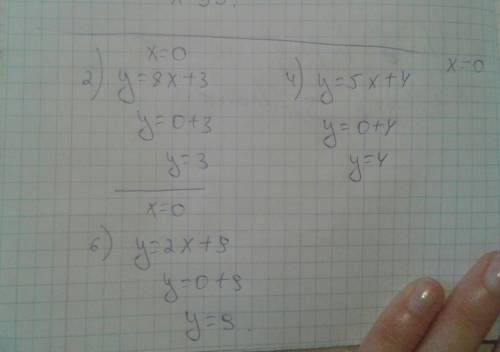 x=0
2) y=8x+3
y=0+3
y=3
4) y=5x+4
x=0
y=0+4
y=4
x=0
6) y=2x+9
y=0+9
y=9